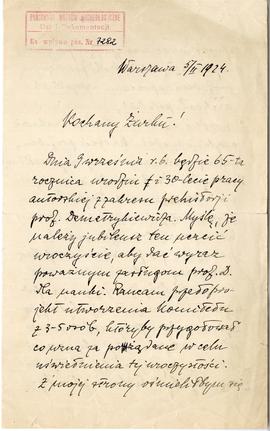 PAŃSTWOWE MUZEUM ARCHEOLOGICZNE
Dział Dokumentacji
Ks. wpływu poz. Nr 7282
Warszawa 5/II 1924.
Kochany Żurku!
Dnia 9 września r.b. będzie 65-ta
rocznica urodzin i 30-lecie pracy
autorskiej z zakresu prehistorji
prof. Demetrykiewicza. Myślę, że
należy jubileusz ten uczcić
uroczyście, aby dać wyraz
poważnym zasługom prof. D.
dla nauki. Rzucam przeto pro-
jekt utworzenia komitetu
z 3-5 osób, któryby przygotował
co uzna za pożądane w celu
uświetnienia tej uroczystości.
Z mojej strony ośmieliłbym się